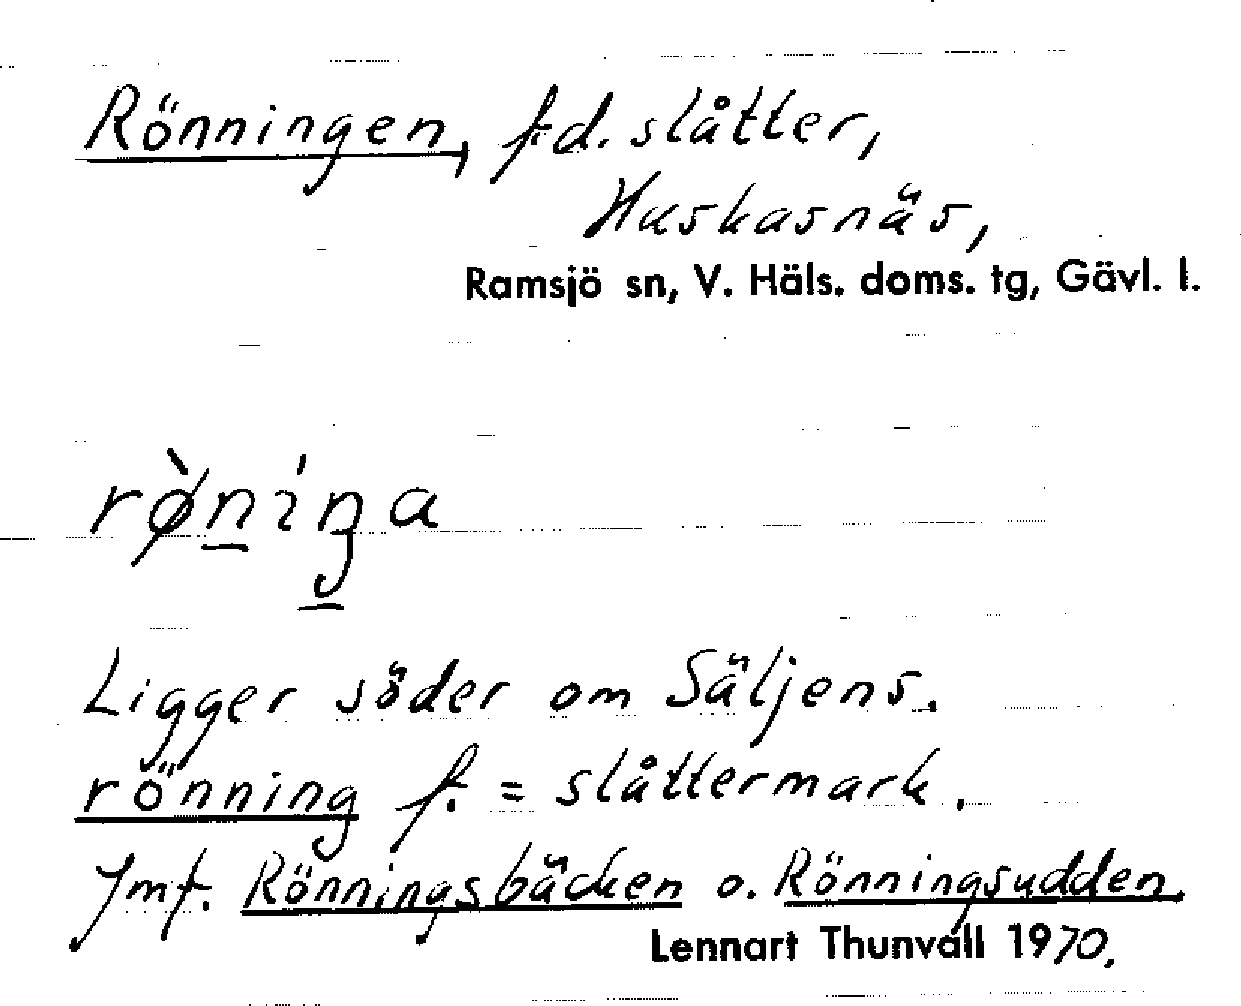 Rönningen, f.d. slåtter,
Huskasnäs,
Ramsjö sn, V. Häls. doms. tg, Gävl. l.
rø̀ni̍ŋa
Ligger söder om Säljens.
rönning f. = slåttermark.
Jmf. Rönningsbäcken o. Rönningsudden.
Lennart Thunvall 1970.